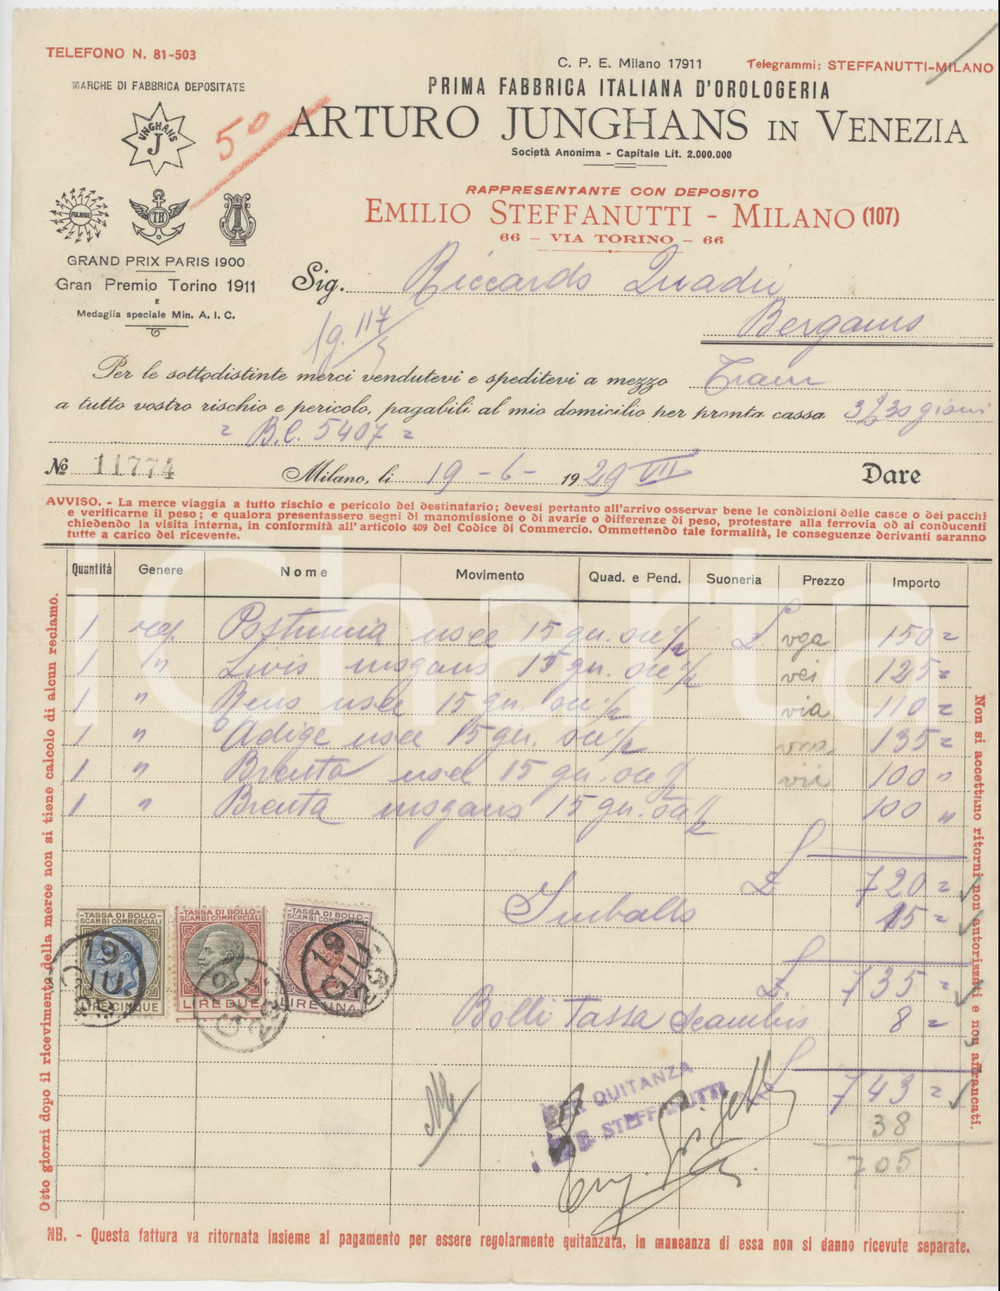 TELEFONO N. 81-503
C. P. E. Milano 17911
Telegrammi: STEFFANUTTI-MILANO
MARCHE DI FABBRICA DEPOSITATE
PRIMA FABBRICA ITALIANA D'OROLOGERIA
ARTURO JUNGHANS IN VENEZIA
Società Anonima - Capitale Lit. 2.000.000
JUNGHANS
J
50
RAPPRESENTANTE CON DEPOSITO
EMILIO STEFFANUTTI - MILANO (107)
66 - VIA TORINO - 66
GRAND PRIX PARIS 1900
Gran Premio Torino 1911
E
Medaglia speciale Min. A. I. C.
Sig. Riccardo Quadri
Bergamo
19. 117/5
Per le sottodistinte merci vendutevi e speditevi a mezzo Tram
a tutto vostro rischio e pericolo, pagabili al mio domicilio per pronta cassa 3% 30 giorni
= B.C. 5407 =
No 11774
Milano, li 19 - 6 - 1929 VII
Dare
AVVISO. - La merce viaggia a tutto rischio e pericolo del destinatario; devesi pertanto all'arrivo osservar bene le condizioni delle casse o dei pacchi
e verificarne il peso; e qualora presentassero segni di manomissione o di avarie o differenze di peso, protestare alla ferrovia od ai conducenti
chiedendo la visita interna, in conformità all'articolo 409 del Codice di Commercio. Ommettendo tale formalità, le conseguenze derivanti saranno
tutte a carico del ricevente.
Quantità Genere Nome Movimento Quad. e Pend. Suoneria Prezzo Importo
1 reg. Postumia usce 15 gn. ore ½ £ vga 150 =
1 " Livis insgans 15 gn. ore ½ vei 125 =
1 " Bens usce 15 gn. ore ½ via 110 =
1 " Adige usce 15 gn. ore ½ 135 =
1 " Brenta usce 15 gn. ore ½ vii 100 "
1 " Brenta insgans 15 gn. ore ½ 100 "
£ 720 =
Imballo 15 =
£ 735 =
Bolli Tassa Scambio 8 =
£ 743 =
38
705
TASSA DI BOLLO
SCAMBI COMMERCIALI
LIRE CINQUE
TASSA DI BOLLO
SCAMBI COMMERCIALI
LIRE DUE
TASSA DI BOLLO
SCAMBI COMMERCIALI
LIRE UNA
19 GIU
PER QUITANZA
STEFFANUTTI
Otto giorni dopo il ricevimento della merce non si tiene calcolo di alcun reclamo.
Non si accettano ritorni non autorizzati e non affrancati.
NB. - Questa fattura va ritornata insieme al pagamento per essere regolarmente quitanzata, in mancanza di essa non si danno ricevute separate.
iCharta